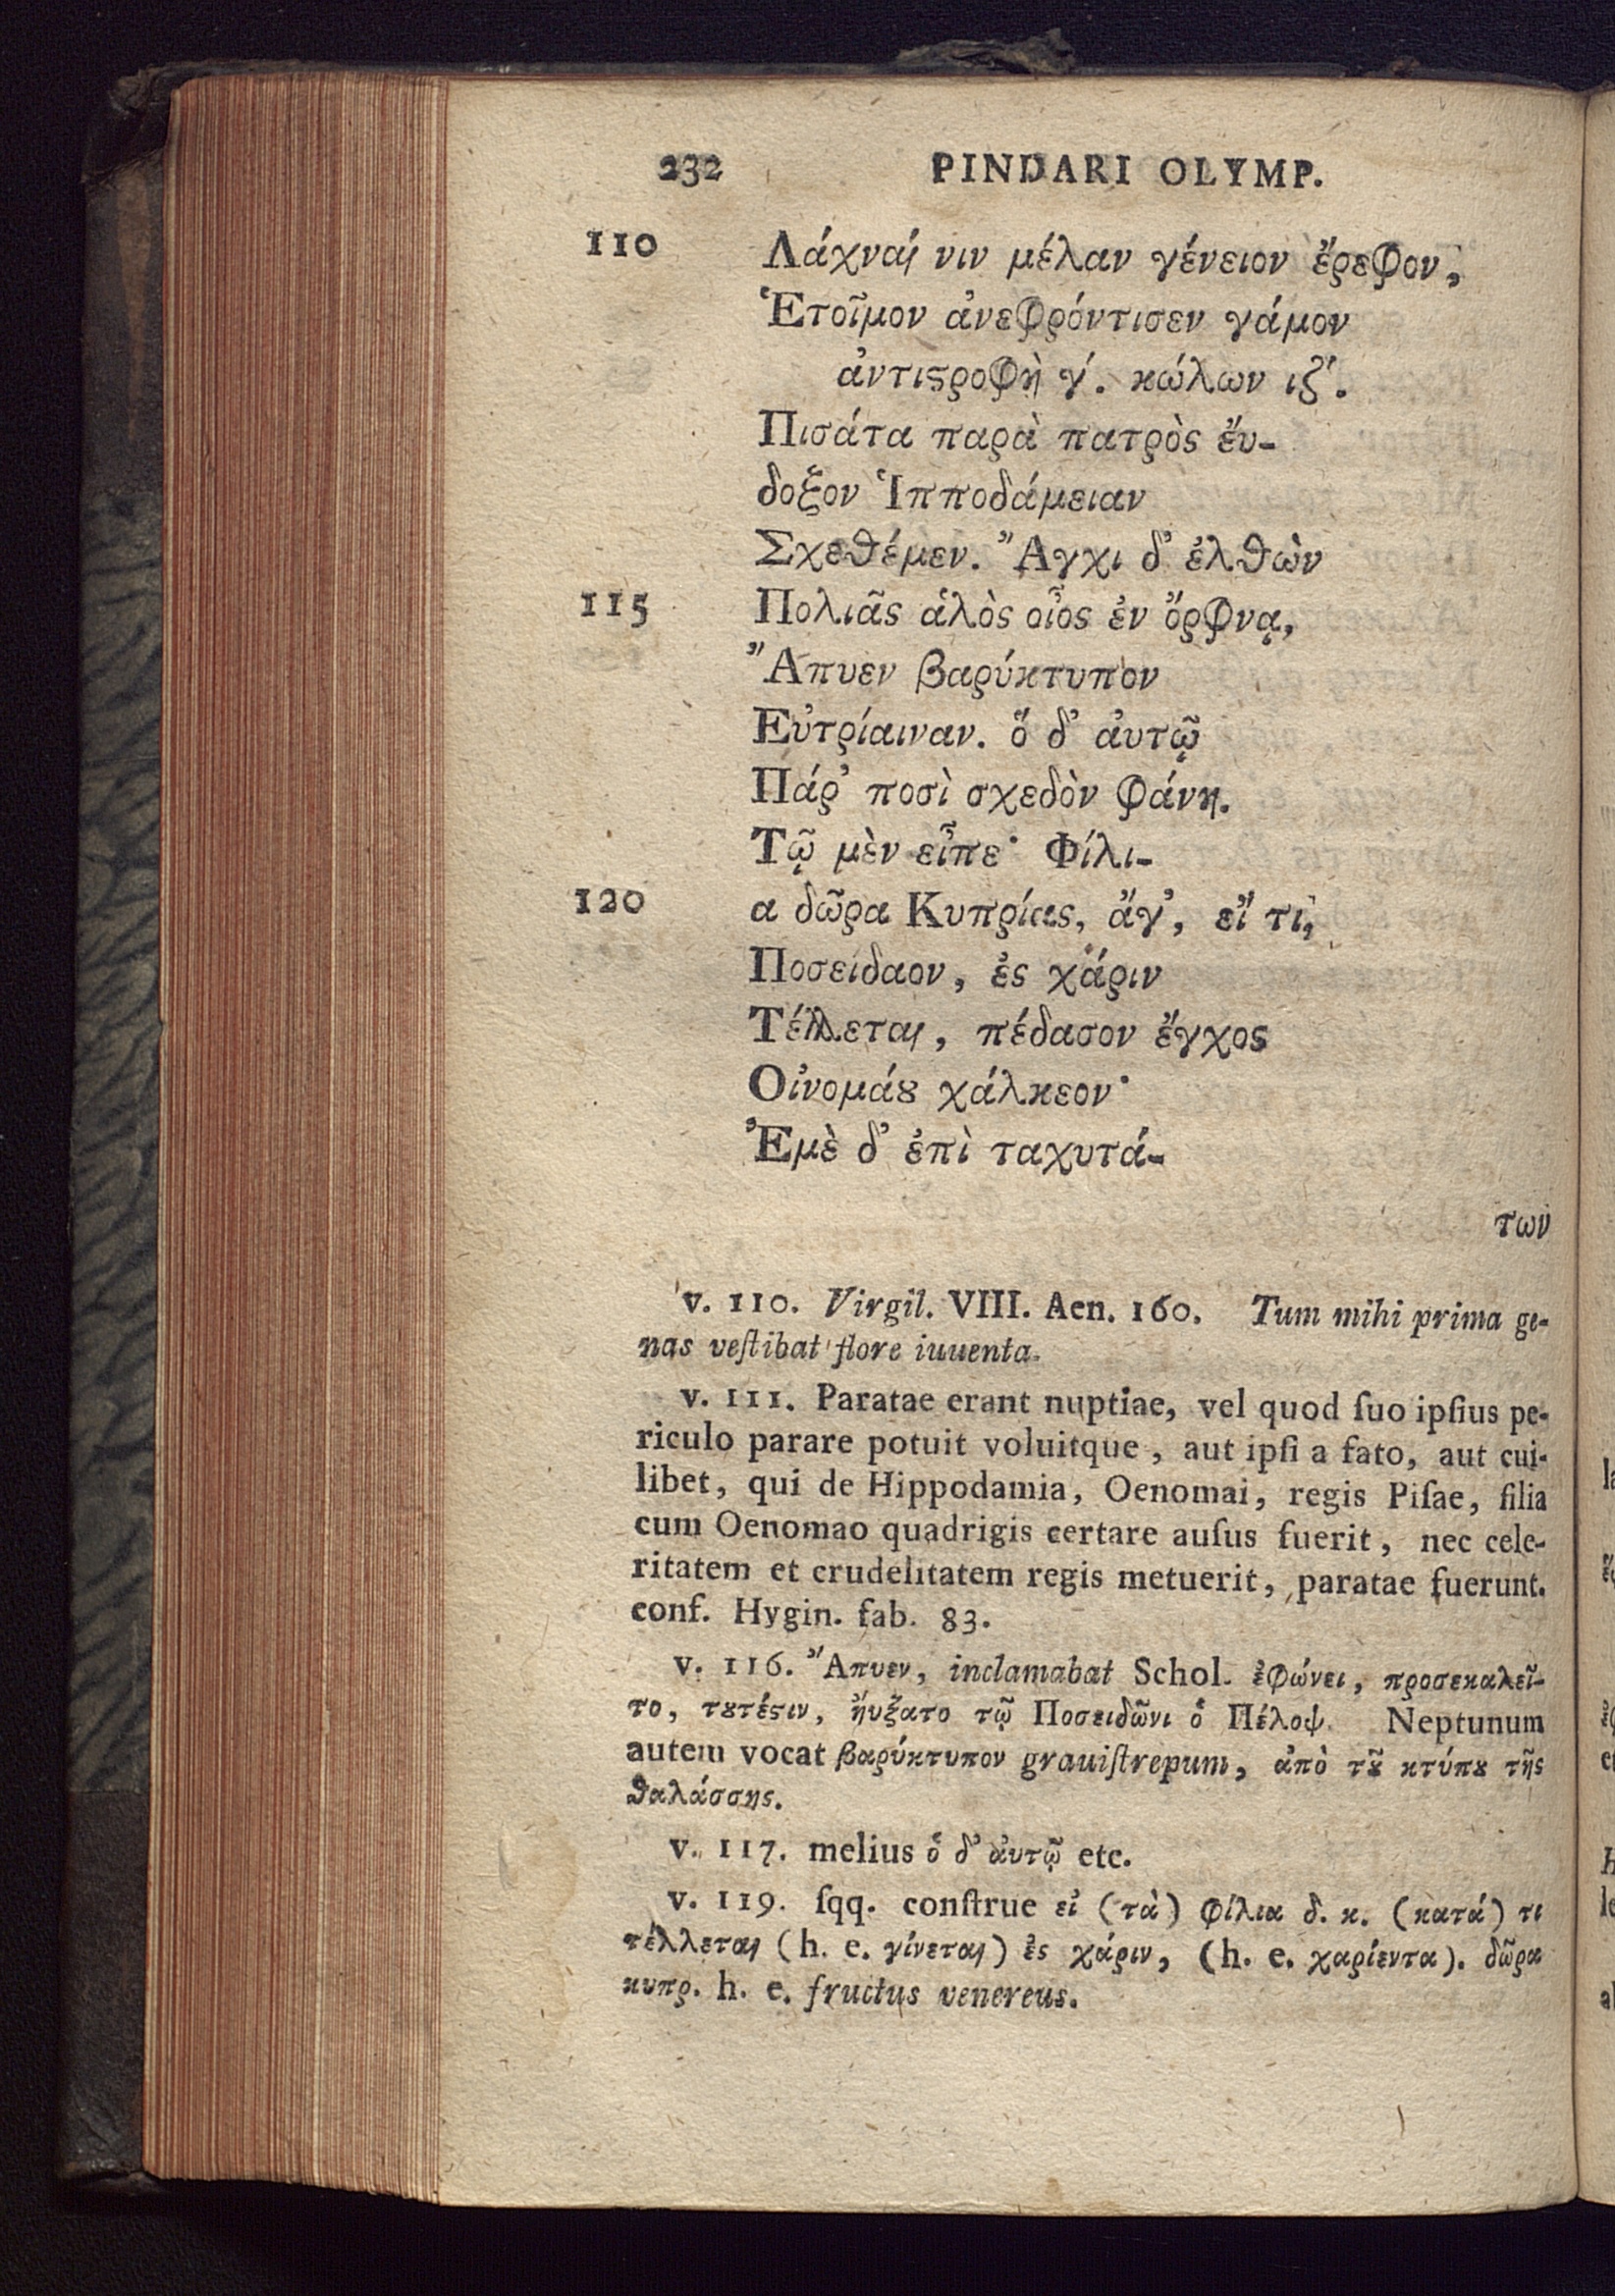 232 PINDARI OLYMP.
110 Λάχναι νιν μέλαν γένειον ἔρεφον,
Ἑτοῖμον ἀνεφρόντισεν γάμον
ἀντιϛροφὴ γ΄. κώλων ιζ΄.
Πισάτα παρὰ πατρὸς ἔυ-
δοξον Ἱπποδάμειαν
Σχεθέμεν. Ἄγχι δ' ἐλθὼν
115 Πολιᾶς ἁλὸς οἶος ἐν ὄρφνᾳ,
Ἄπυεν βαρύκτυπον
Εὐτρίαιναν. ὅ δ' ἀυτῷ
Πάρ' ποσὶ σχεδὸν φάνη.
Τῷ μὲν εἶπε· Φίλι-
120 α δῶρα Κυπρίας, ἄγ', εἴ τι,
Ποσείδαον, ἐς χάριν
Τέλλεται, πέδασον ἔγχος
Οἰνομάȣ χάλκεον·
Ἐμὲ δ' ἐπὶ ταχυτά-
των
v. 110. Virgil. VIII. Aen. 160. Tum mihi prima ge-
nas veſtibat flore iuuenta.
v. 111. Paratae erant nuptiae, vel quod ſuo ipſius pe-
riculo parare potuit voluitque, aut ipſi a fato, aut cui-
libet, qui de Hippodamia, Oenomai, regis Piſae, filia
cum Oenomao quadrigis certare auſus fuerit, nec cele-
ritatem et crudelitatem regis metuerit, paratae fuerunt.
conf. Hygin. fab. 83.
v. 116. Ἄπυεν, inclamabat Schol. ἐφώνει, προσεκαλεῖ-
το, τȣτέϛιν, ἤυξατο τῷ Ποσειδῶνι ὁ Πέλοψ. Neptunum
autem vocat βαρύκτυπον grauiſtrepum, ἀπὸ τȣ͂ κτύπȣ τῆς
θαλάσσης.
v. 117. melius ὁ δ' ἀυτῷ etc.
v. 119. ſqq. conſtrue εἰ (τὰ) φίλια δ. κ. (κατά) τι
τέλλεται (h. e. γίνεται) ἐς χάριν, (h. e. χαρίεντα). δῶρα
κυπρ. h. e. fructus venereus.